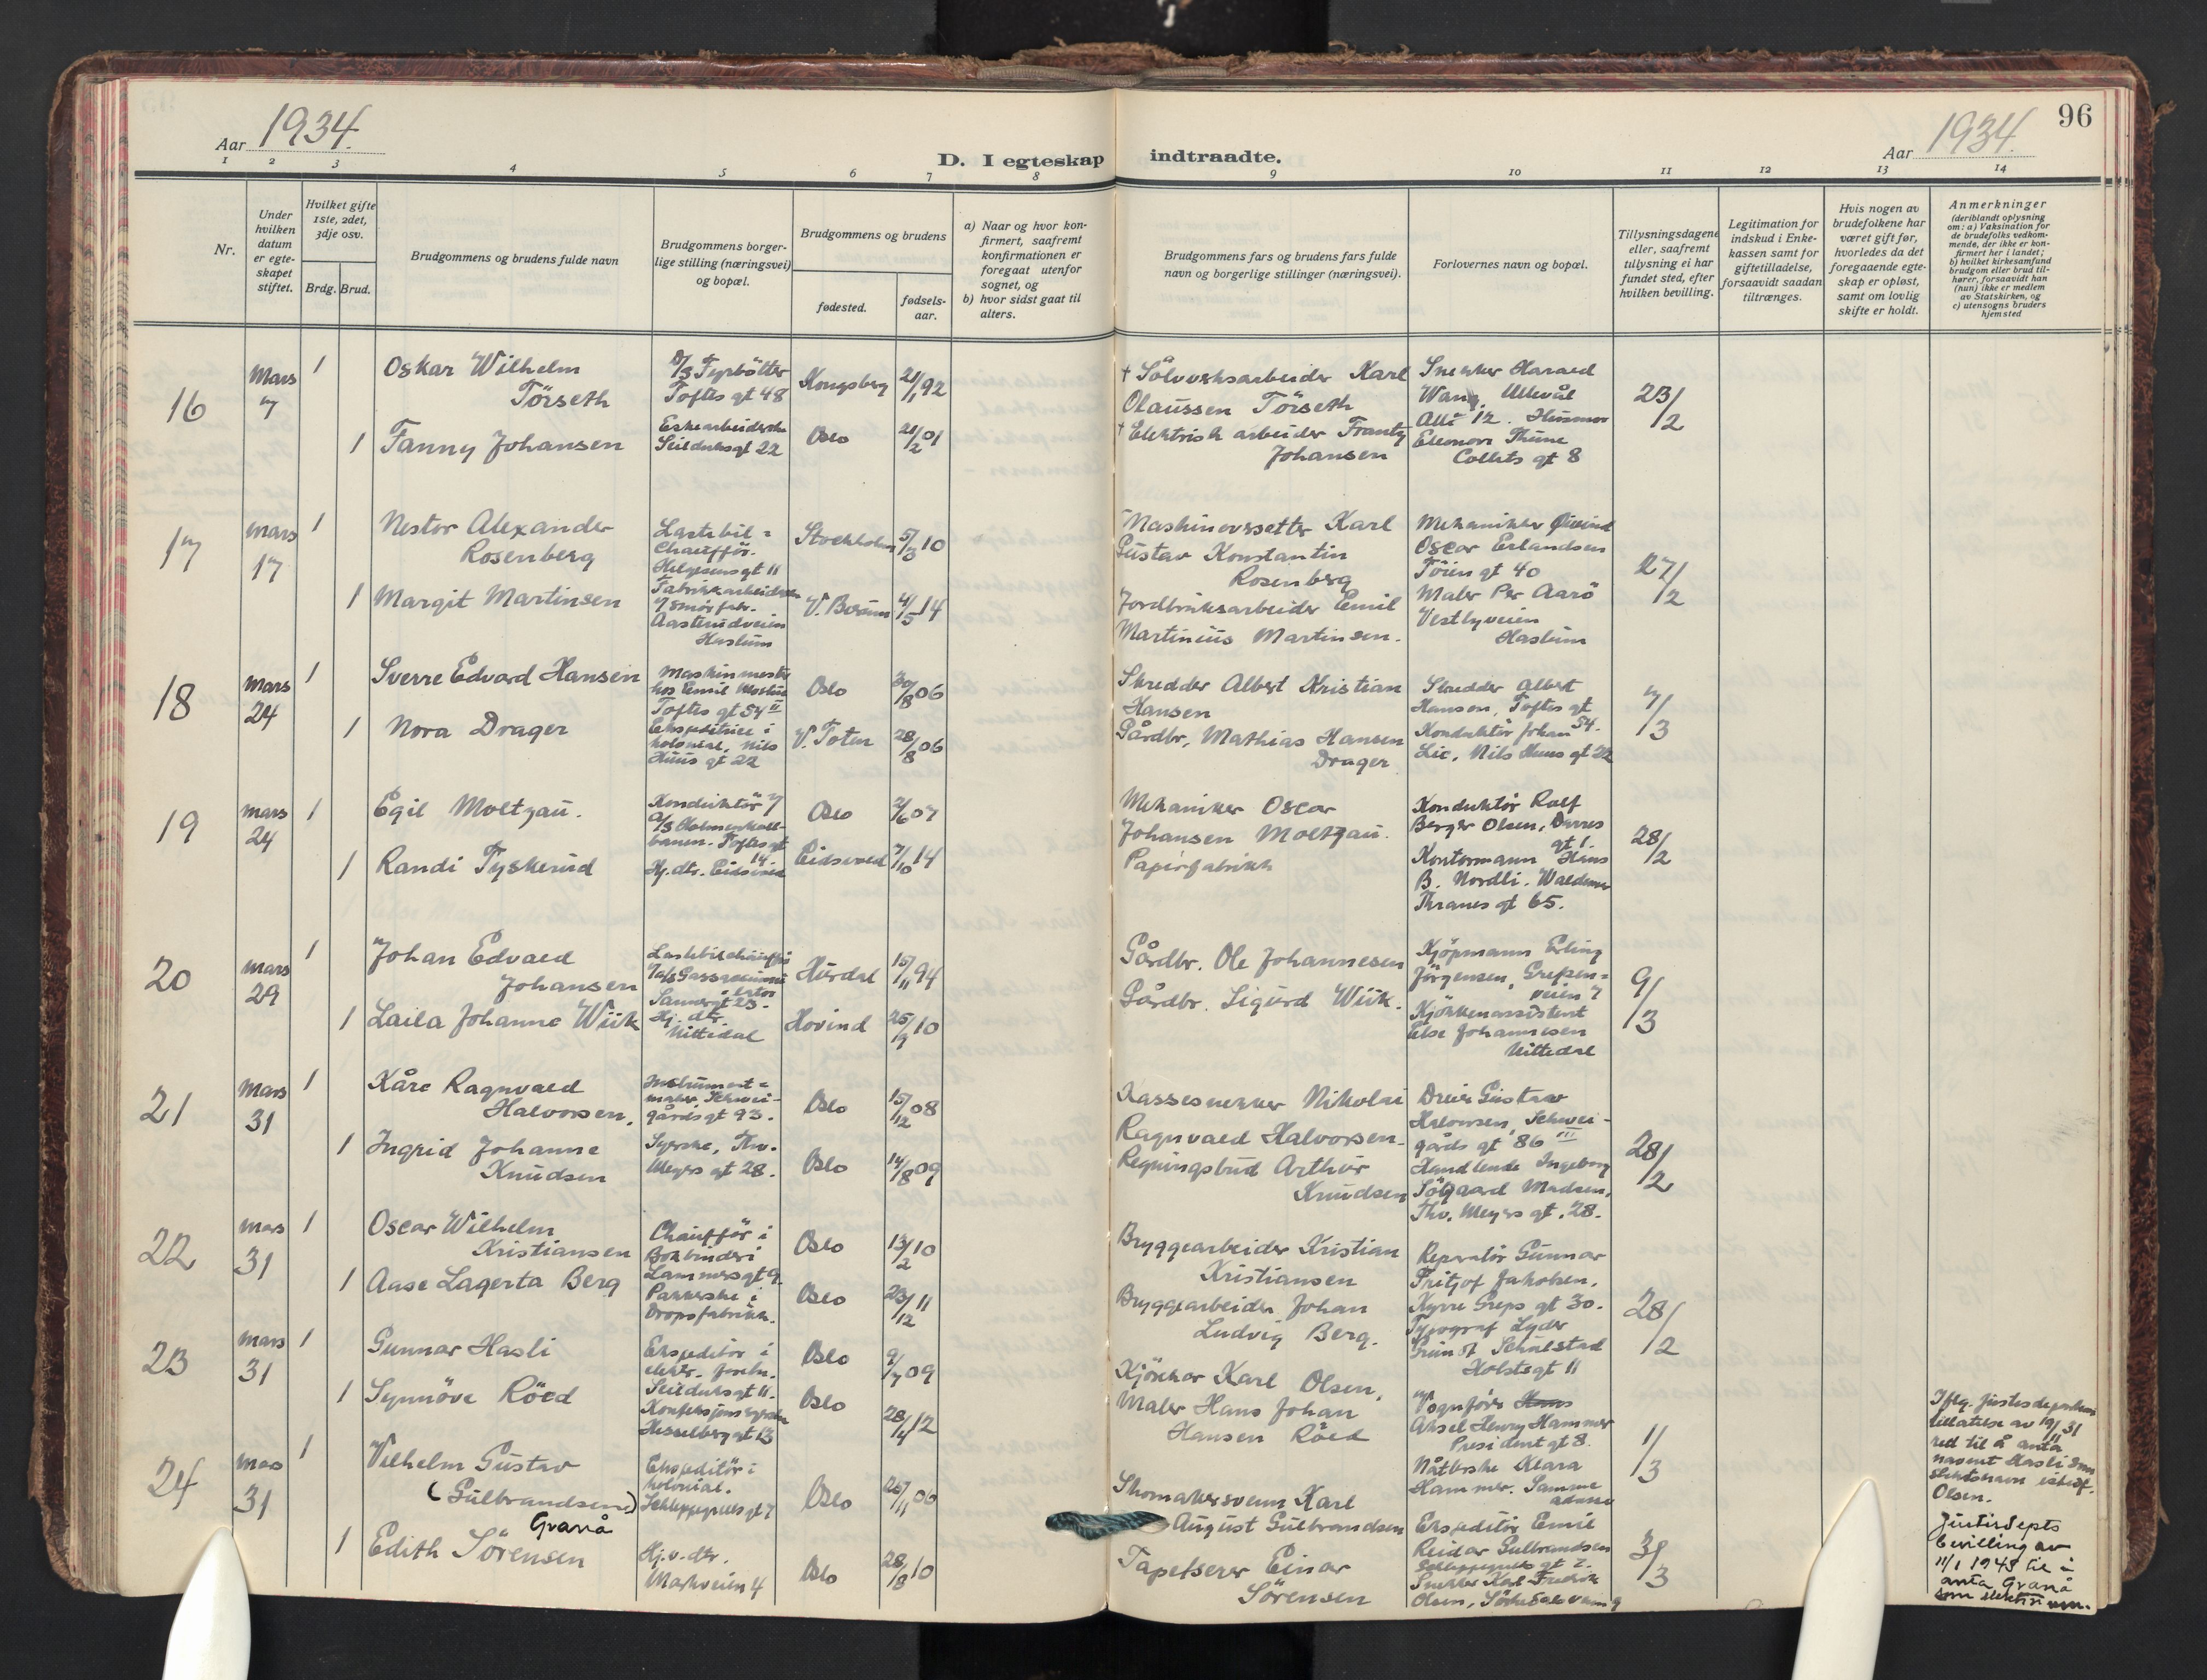 Aar 1934.
D. I egteskap indtraadte.
Aar 1934.
96
1 2 3 4 5 6 7 8 9 10 11 12 13 14
Nr.
Under
hvilken
datum
er egte-
skapet
stiftet.
Hvilket gifte
1ste, 2det,
3dje osv.
Brdg. Brud.
Brudgommens og brudens fulde navn
Brudgommens borger-
lige stilling (næringsvei)
og bopæl.
Brudgommens og brudens
fødested.
fødsels-
aar.
a) Naar og hvor kon-
firmert, saafremt
konfirmationen er
foregaat utenfor
sognet, og
b) hvor sidst gaat til
alters.
Brudgommens fars og brudens fars fulde
navn og borgerlige stillinger (næringsvei).
Forlovernes navn og bopæl.
Tillysningsdagene
eller, saafremt
tillysning ei har
fundet sted, efter
hvilken bevilling.
Legitimation for
indskud i Enke-
kassen samt for
giftetilladelse,
forsaavidt saadan
tiltrænges.
Hvis nogen av
brudefolkene har
været gift før,
hvorledes da det
foregaaende egte-
skap er opløst,
samt om lovlig
skifte er holdt.
Anmerkninger
(deriblandt oplysning
om: a) Vaksination for
de brudefolks vedkom-
mende, der ikke er kon-
firmert her i landet;
b) hvilket kirkesamfund
brudgom eller brud til-
hører, forsaavidt han
(hun) ikke er medlem
av Statskirken, og
c) utensogns bruders
hjemsted
16
Mars
7
1
Oskar Wilhelm
Törseth
Fyrbötter
Toftes gt 48
Kongsberg
21/1 92
+ Sölvverksarbeider Karl
Olaussen Törseth
Snekker Harald
Wang, Ullevål
Allé 12. Husmor
Eleonora Thune
Colletts gt 8
23/2
1
Fanny Johansen
Eskearbeiderske
Seilduksgt 22
Oslo
21/2 01
+ Elektrisk arbeider Frantz
Johansen
17
Mars
17
1
Nestor Alexander
Rosenberg
Lastebil=
Chauffför.
Helgesens gt 11
Stockholm
5/3 10
Maskinovssetter Karl
Gustav Konstantin
Rosenberg
Mekaniker Øivind
Oscar Erlandsen
Töien gt 40
Maler Per Aarö
Vestlyveien
Haslum
27/2
1
Margit Martinsen
Fabrikkarbeiderske
i Smörfabr.
Aasterudveien
Haslum
V. Bærum
4/5 14
Jordbruksarbeider Emil
Martinius Martinsen.
18
Mars
24
1
Sverre Edvard Hansen
Maskinmester
hos Emil
Toftes gt 54 II
Oslo
30/8 06
Skredder Albert Kristian
Hansen
Skredder Albert
Hansen, Toftes gt
54.
Konduktör Johan
Lie, Nils Huus gt 22
7/3
1
Nora Drager
Ekspeditrice i
kolonial, Nils
Huus gt 22
V. Toten
28/8 06
Gårdbr. Mathias Hansen
Drager
19
Mars
24
1
Egil Moltzau.
Konduktör v/
A/S Holmenkoll-
banen. Toftes gt
14.
Oslo
2/6 07
Mekaniker Oscar
Johansen Moltzau.
Konduktör Rolf
Berger Olsen, Darres
gt 1.
Kontormann Hans
B. Nordli. Waldemar
Thranes gt 65.
28/2
1
Randi Tyskerud
Hj. dtr. Eidsvold
Eidsvold
7/10 14
Papirfabrikk
20
Mars
29
1
Johan Edvald
Johansen
Lastebilchaufför
Sannergt 25.
Hurdal
15/11 94
Gårdbr. Ole Johannesen
Kjöpmann Erling
Jörgensen, Grefsen=
veien 7
Kjökkenassistent
Else Johannesen
Nittedal
9/3
1
Laila Johanne Wiik
Hj. dtr.
Nittedal
Hovind
25/9 10
Gårdbr. Sigurd Wiik.
21
Mars
31
1
Kåre Ragnvald
Halvorsen.
Instrument=
maker, Schwei-
gårds gt 93.
Oslo
15/12 08
Kassesnekker Nikolai
Ragnvald Halvorsen.
Dreier Gustav
Halvorsen, Schwei-
gårds gt 86 III
Handlende Ingeborg
Södgaard Madsen,
Thv. Meyers gt. 28.
28/2
1
Ingrid Johanne
Knudsen
Syerske, Thv.
Meyers gt 28.
Oslo
14/8 09
Regningsbud Arthur
Knudsen
22
Mars
31
1
Oscar Wilhelm
Kristiansen
Chauffför i
Bokbinderi
Lammersgt 9
Oslo
13/2 10
Bryggearbeider Kristian
Kristiansen
Reparatör Gunnar
Fritjof Jakobsen,
Kyrre Greps gt 30.
Typograf Lyder
Schulstad
Holstsgt 11
28/2
1
Aase Lagerta Berg
Pakkerske i
Dropsfabrikk.
Oslo
23/12 11
Bryggearbeider Johan
Ludvig Berg.
23
Mars
31
1
Gunnar Hasli
Ekspeditör i
elektr. forretn.
Seilduksgt 11.
Oslo
9/7 09
Kjörekar Karl Olsen,
Vognförer Hans
Aksel Henry Hammer
President gt 8.
Nåtlerske Klara
Hammer. Samme
adresse
1/3
1
Synnöve Röed
Konfeksjonssyerske
Hesselberg gt 13
Oslo
28/4 12
Maler Hans Johan
Hansen Röed
Iflg. Justisdepartem.
tillatelse av 19/11 31
rett til å anta
navnet Hasli som
slektsnavn istedf.
Olsen.
24
Mars
31
1
Vilhelm Gustav
(Gulbrandsen)
Granå
Ekspeditör i
kolonial.
Schleppegrells gt 7
Oslo
26/11 06
Skomakersvenn Karl
August Gulbrandsen
Ekspeditör Emil
Reidar Gulbrandsen
Schleppegrells gt 7.
Snekker Karl Fredrik
Olsen,
3/3
1
Edith Sörensen
Hj. v. dtr.
Markveien 4
Oslo
28/8 10
Tapetserer Einar
Sörensen
Justisdepts
bevilling av
11/1 1945 til å
anta Granå
som slektsnavn.